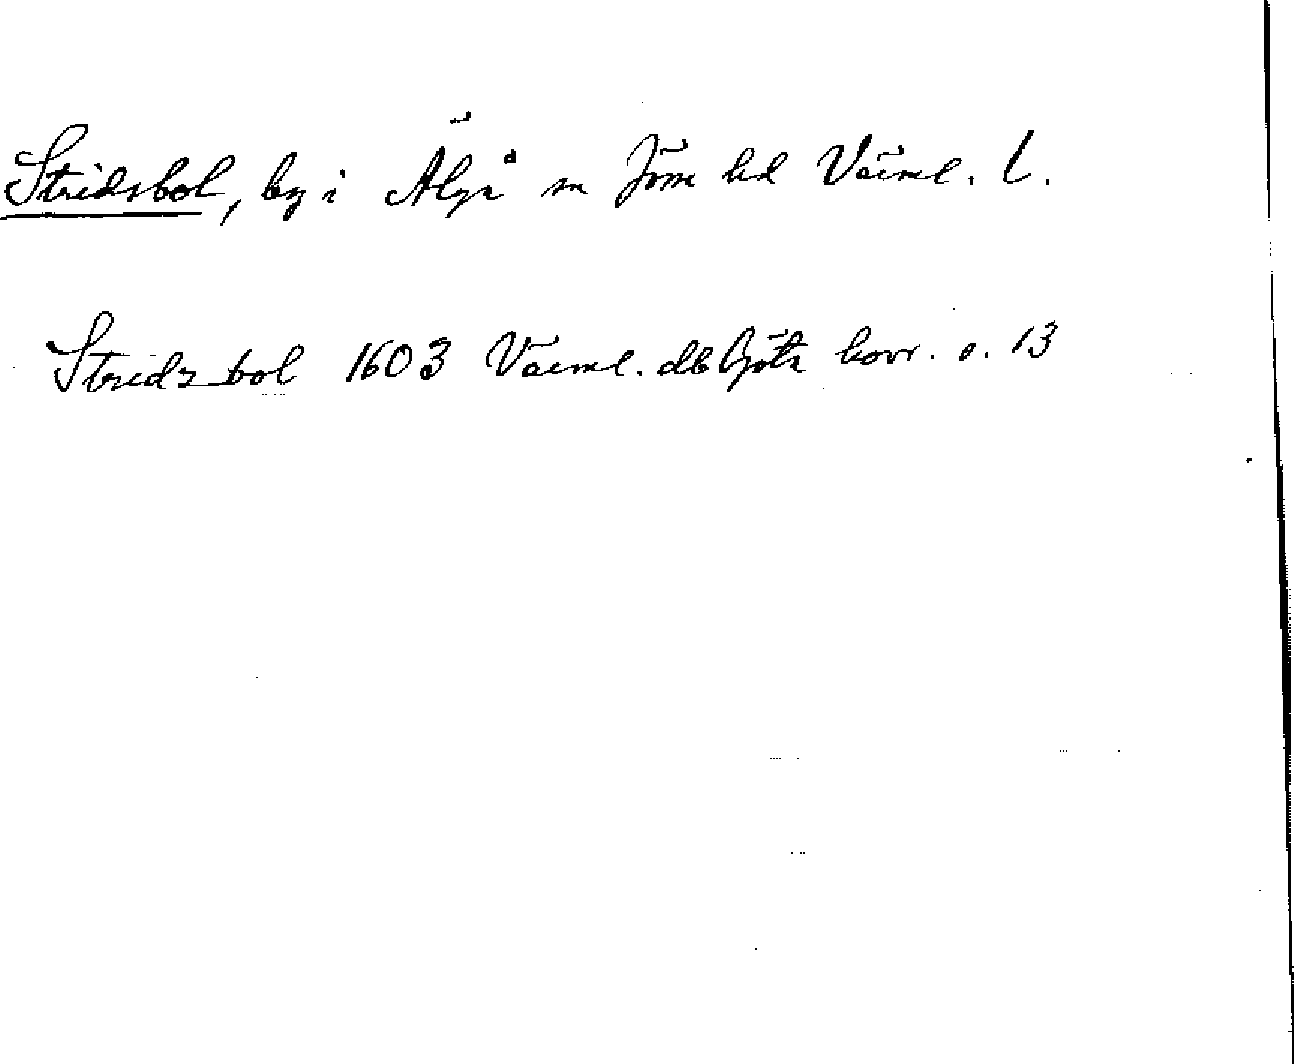 Stridsbol, by i Älgå sn Jöss hd Värml. l.
Stridzbol 1603 Värml. db Göta hovr. s. 13